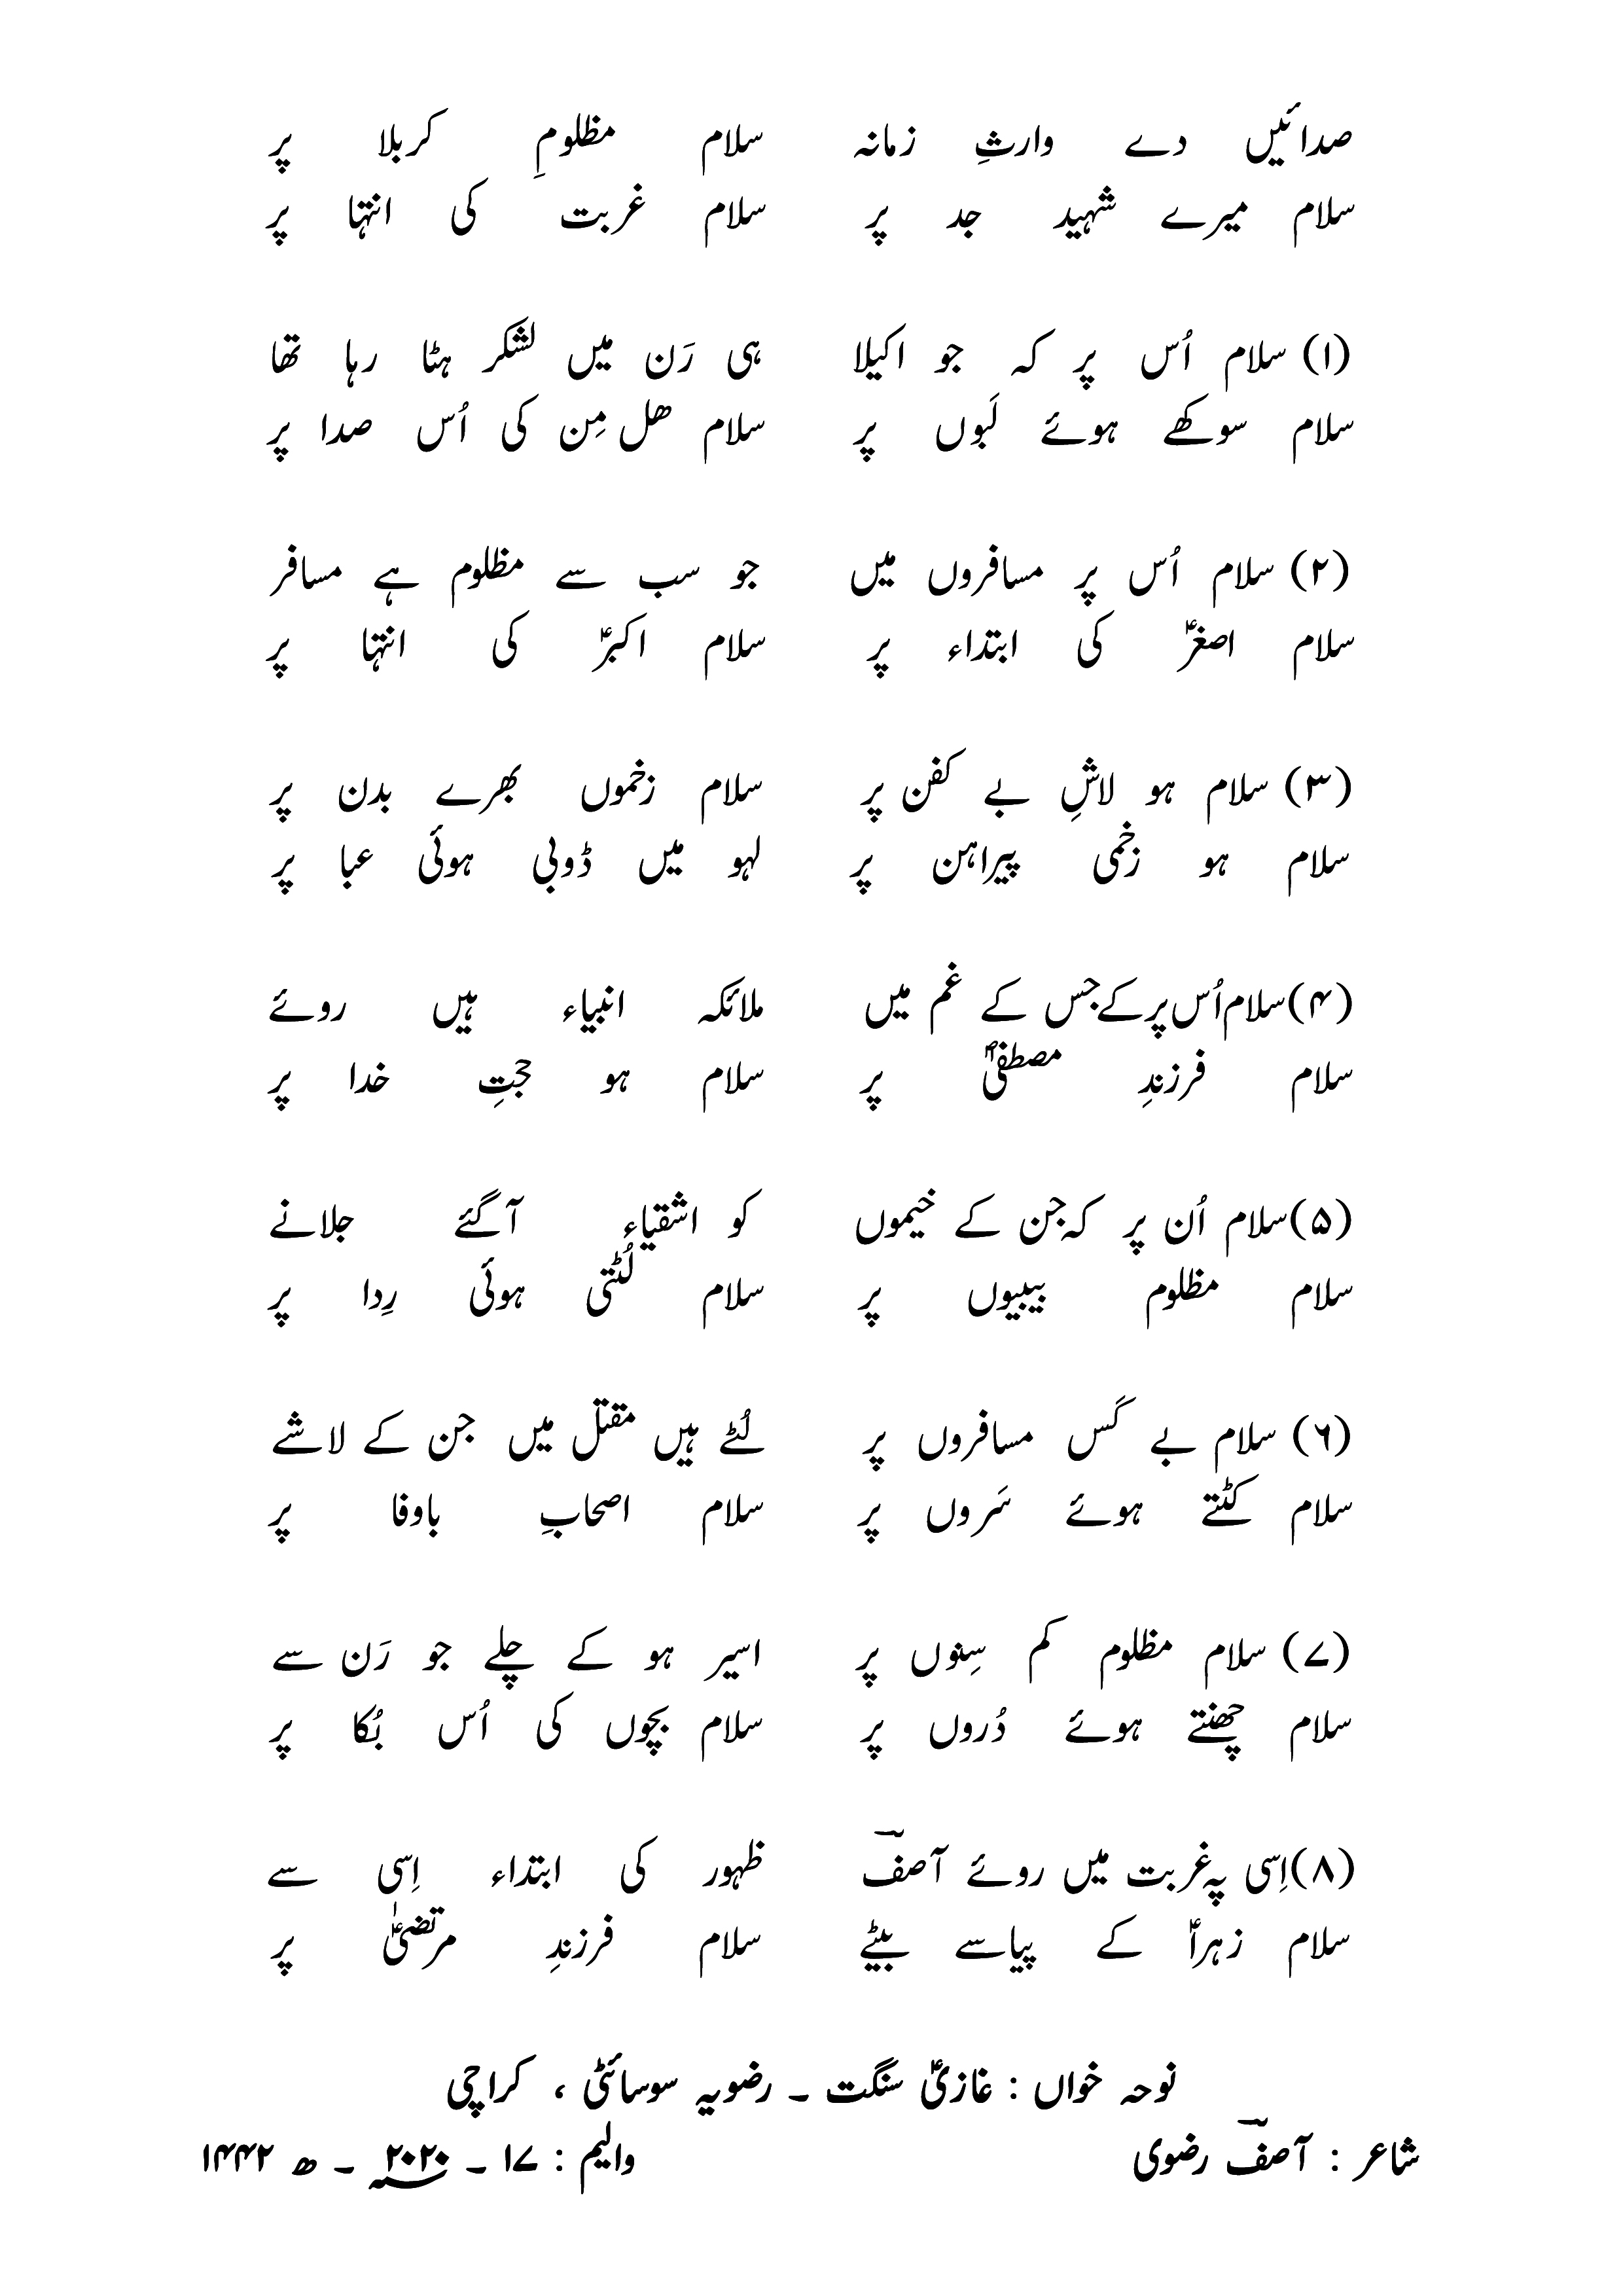 صدائیں دے وارثِ زمانہ سلام مظلومِ کربلا پر
سلام میرے شہید جد پر سلام غربت کی انتہا پر
(۱) سلام اُس پر کہ جو اکیلا ہی رَن میں لشکر ہٹا رہا تھا
سلام سوکھے ہوئے لَبوں پر سلام ھل مِن کی اُس صدا پر
(۲) سلام اُس پر مسافروں میں جو سب سے مظلوم ہے مسافر
سلام اصغرؑ کی ابتداء پر سلام اکبرؑ کی انتہا پر
(۳) سلام ہو لاشِ بے کفن پر سلام زخموں بھرے بدن پر
سلام ہو زخمی پیراہن پر لہو میں ڈوبی ہوئی عبا پر
(۴) سلام اُس پر کے جس کے غم میں ملائکہ انبیاء ہیں روئے
سلام فرزندِ مصطفیٰؐ پر سلام ہو حجتِ خدا پر
(۵) سلام اُن پر کہ جن کے خیموں کو اشقیاء آگئے جلانے
سلام مظلوم بیبیوں پر سلام لُٹتی ہوئی رِدا پر
(۶) سلام بے کَس مسافروں پر لُٹے ہیں مقتل میں جن کے لاشے
سلام کٹتے ہوئے سَروں پر سلام اصحابِ باوفا پر
(۷) سلام مظلوم کم سِنوں پر اسیر ہو کے چلے جو رَن سے
سلام چھنتے ہوئے دُروں پر سلام بچوں کی اُس بُکا پر
(۸) اِسی پہ غربت میں روئے آصفؔ ظہور کی ابتداء اِسی سے
سلام زہراؑ کے پیاسے بیٹے سلام فرزندِ مرتضیٰؑ پر
نوحہ خواں : غازیؑ سنگت ۔ رضویہ سوسائٹی ، کراچی
شاعر : آصفؔ رضوی والیم : ۱۷ ۔ ۲۰۲۰؁ ۔ ھ ۱۴۴۲